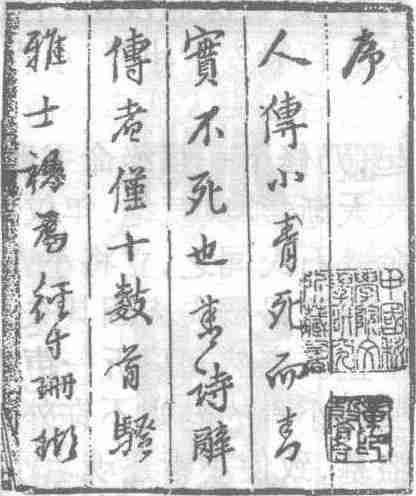 序
人傳小青死而青
實不死也青詩辭
傳者僅十數首騷
雅士為徑寸珊瑚
中國科
學院文
學研究
所藏書